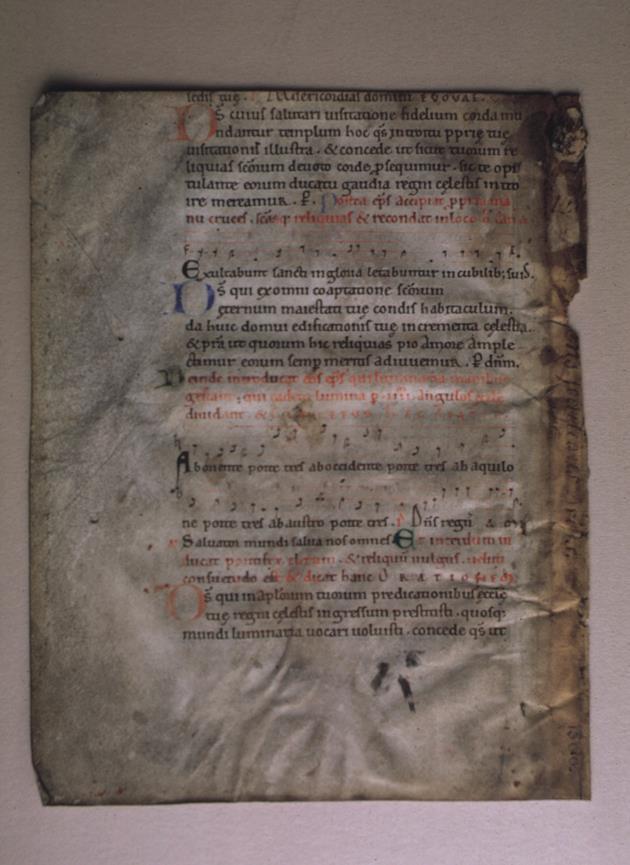 sedis tuę. Misericordias domini EVOVAE.
Ds cuius salutari visitatione fidelium corda mu
ndantur templum hoc qs introitu pprię tuę
visitationis illustra. & concede ut sicut tuorum re
liquias scōrum devoto corde psequimur. sic te opi
tulante eorum ducatu gaudia regni cęlestis intro
ire mereamur. P. Postea eps accipiat
nu cruces. reliquias & recondat in loco
Exultabunt sancti in gloria lętabuntur in cubilib; suis.
Ds qui ex omni coaptatione scōrum
ęternum maiestati tuę condis habitaculum.
da huic domui edificationis tuę incrementa cęlestia.
& prā ut quorum hic reliquias pio amore ample
ctimur eorum semp meritis adiuvemur. P dnm.
Deinde introducat eps
gestant; qui eadem lumina p. IIII. angulos
dividant.
Ab oriente porte tres ab occidente porte tres ab aquilo
ne porte tres ab austro porte tres. Dns regn
Salvator mundi salva nos omnes Et interdum in
ducat pontifex clerum. & reliquum vulgus. velut
consuetudo est & dicat hanc ORATIONEM
Ds qui in aplōrum tuorum predicationibus ęccłę
tuę regni cęlestis ingressum prestitisti. quosq:
mundi luminaria vocari voluisti. concede qs ut